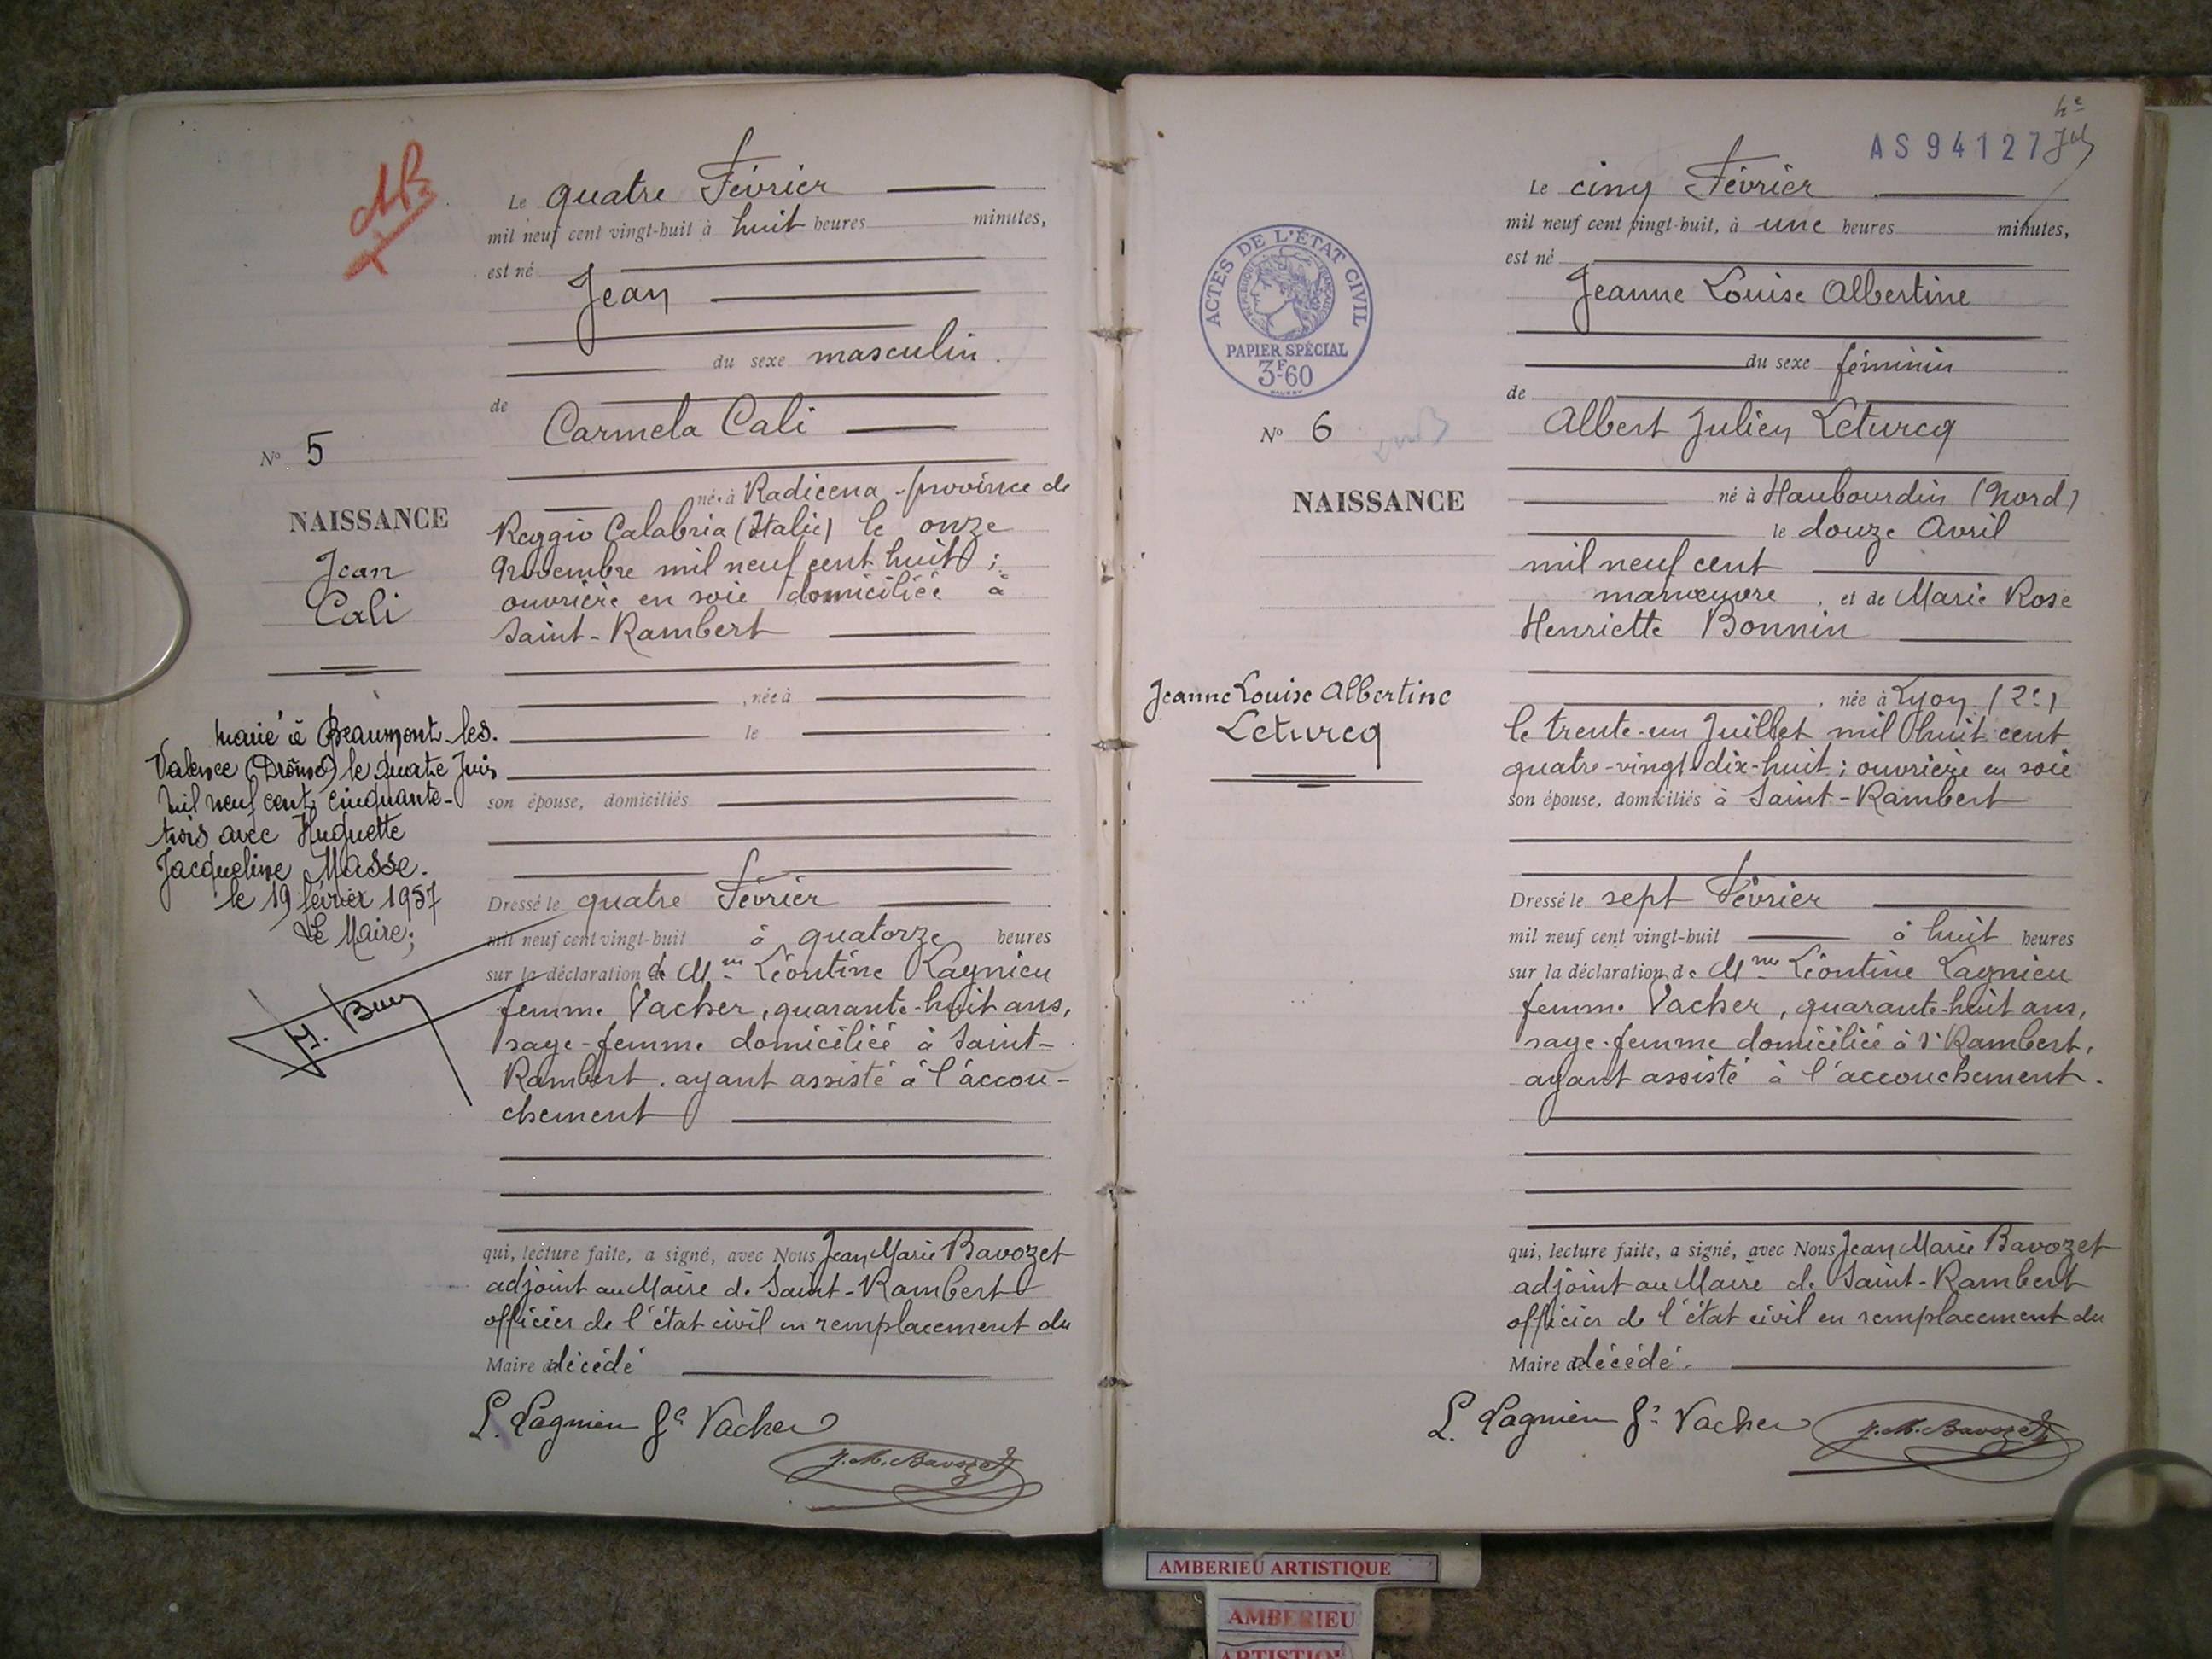 AB
Le quatre Février
mil neuf cent vingt-huit à huit heures minutes,
est né
Jean
du sexe masculin.
de
Carmela Cali
N° 5
née à Radicena - province de
NAISSANCE
Reggio Calabria (Italie) le onze
Novembre mil neuf cent huit ;
Jean
ouvrière en soie domiciliée à
Cali
Saint-Rambert
, née à
le
son épouse, domiciliés
marié à Beaumont-les-
Valence (Drôme) le quatre Juin
mil neuf cent cinquante-
trois avec Huguette
Jacqueline Masse.
le 19 février 1957
Le Maire;
Dressé le quatre Février
mil neuf cent vingt-huit à quatorze heures
sur la déclaration de Mme Léontine Lagnieu
femme Vacher, quarante-huit ans,
sage-femme domiciliée à Saint-
Rambert, ayant assisté à l'accou-
chement
qui, lecture faite, a signé, avec Nous Jean Marie Bavozet
adjoint au Maire de Saint-Rambert
officier de l'état civil en remplacement du
Maire décédé
L. Lagnieu fe Vacher
J. M. Bavozet
AS 94127
Le cinq Février
mil neuf cent vingt-huit, à une heures minutes,
est né
Jeanne Louise Albertine
du sexe féminin
de
ACTES DE L'ÉTAT CIVIL
RÉPUBLIQUE FRANÇAISE
PAPIER SPÉCIAL
3F60
Albert Julien Leturcq
N° 6
né à Haubourdin (Nord)
NAISSANCE
le douze Avril
mil neuf cent
manœuvre , et de Marie Rose
Henriette Bonnin
Jeanne Louise Albertine
Leturcq
, née à Lyon (2e)
le trente-un Juillet mil huit cent
quatre-vingt-dix-huit ; ouvrière en soie
son épouse, domiciliés à Saint-Rambert
Dressé le sept Février
mil neuf cent vingt-huit à huit heures
sur la déclaration de Mme Léontine Lagnieu
femme Vacher, quarante-huit ans,
sage-femme domiciliée à St Rambert,
ayant assisté à l'accouchement.
qui, lecture faite, a signé, avec Nous Jean Marie Bavozet
adjoint au Maire de Saint-Rambert
officier de l'état civil en remplacement du
Maire décédé.
L. Lagnieu fe Vacher
J. M. Bavozet
AMBERIEU ARTISTIQUE
AMBERIEU
ARTISTIQUE